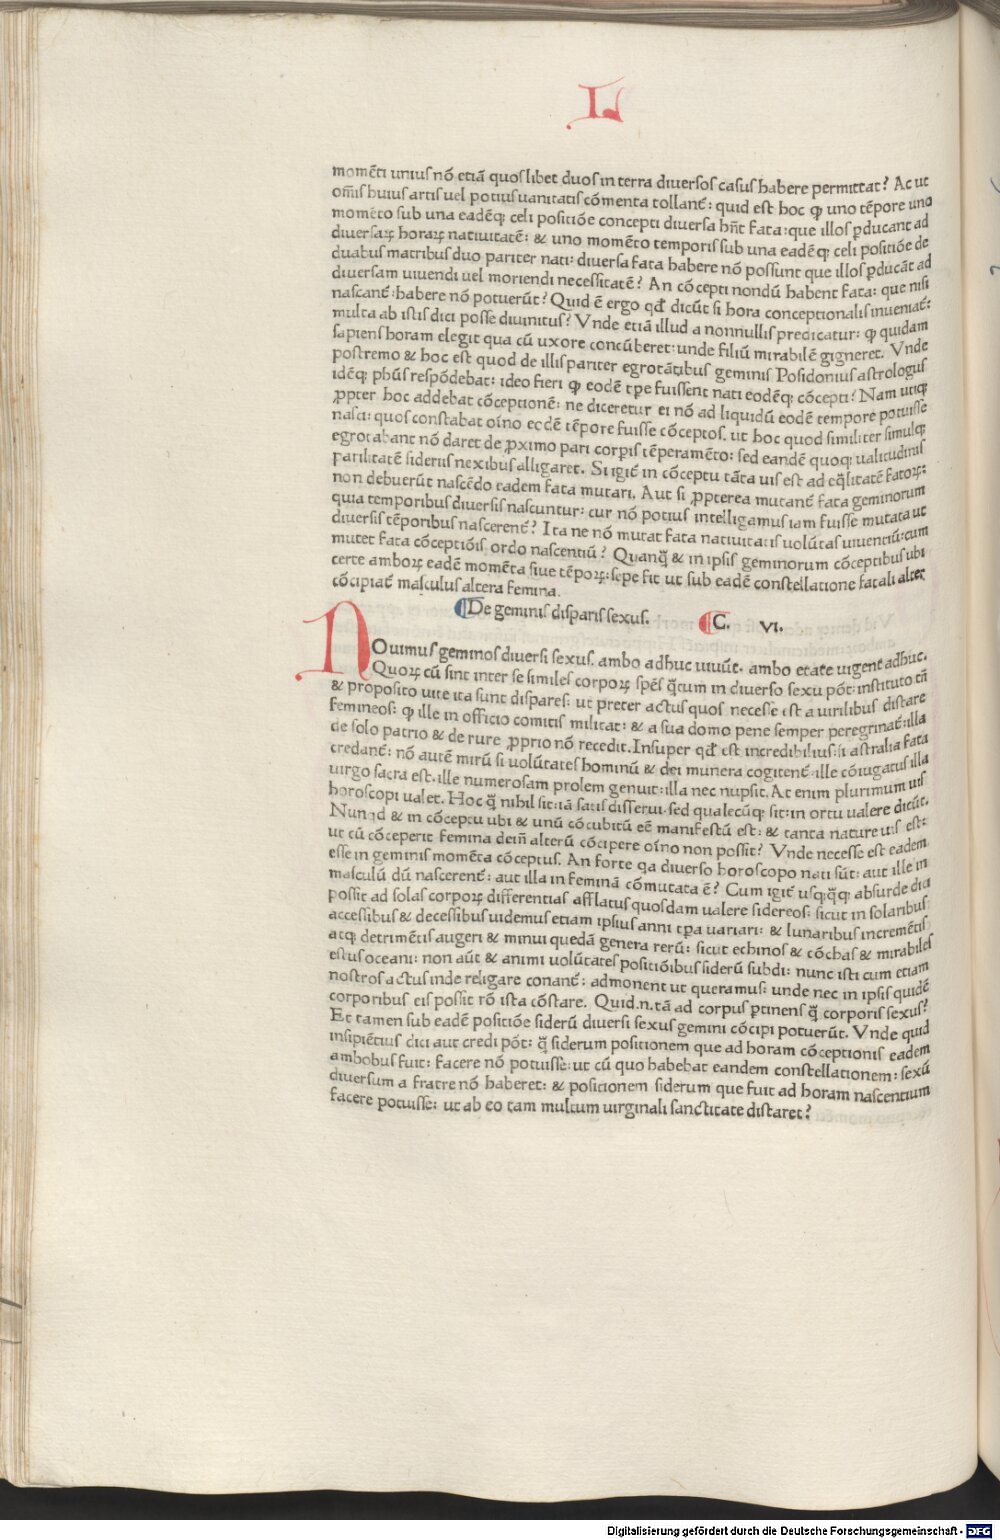 L
momēti unius nō etiā quoslibet duos in terra diuersos casus habere permittat? Ac ut
oīns huius artis uel potius uanitatis cōmenta tollant᷑: quid est hoc ꝙ uno tēpore uno
momēto sub una eadēq; celi positiōe concepti diuersa hn̄t fata: que illos ꝑducant ad
diuersaꝝ horaꝝ natiuitatē: & uno momēto temporis sub una eadēq; celi positiōe de
duabus matribus duo pariter nati: diuersa fata habere nō possunt que illos ꝑducāt ad
diuersam uiuendi uel moriendi necessitatē? An cōcepti nondū habent fata: que nisi
nascant᷑: habere nō potuerūt? Quid ē ergo qđ dicūt si hora conceptionalis inueniat᷑:
multa ab istis dici posse diuinitus? Vnde etiā illud a nonnullis predicatur: ꝙ quidam
sapiens horam elegit qua cū uxore concūberet: unde filiū mirabilē gigneret. Vnde
postremo & hoc est quod de illis pariter egrotātibus geminis Posidonius astrologus
idēq; phūs respōdebat: ideo fieri ꝙ eodē tꝑe fuissent nati eodēq; cōcepti? Nam utiq;
ꝓpter hoc addebat cōceptionē: ne diceretur ei nō ad liquidū eodē tempore potuisse
nasci: quos constabat oīno eodē tēpore fuisse cōceptos. ut hoc quod similiter simulq;
egrotabant nō daret de ꝓximo pari corꝑis tēperamēto: sed eandē quoq; ualitudinis
parilitatē siderius nexibus alligaret. Si igit᷑ in cōceptu tāta uis est ad eq̄litatē fatoꝝ:
non debuerūt nascēdo eadem fata mutari. Aut si ꝓpterea mutant᷑ fata geminorum
quia temporibus diuersis nascuntur: cur nō potius intelligamus iam fuisse mutata ut
diuersis tēporibus nascerent᷑? Ita ne nō mutat fata natiuitatis uolūtas uiuentiū: cum
mutet fata cōceptiōis ordo nascentiū? Quanq̄ & in ipsis geminorum cōceptibus ubi
certe amboꝝ eadē momēta siue tēpoꝝ: sepe fit ut sub eadē constellatione fatali alter
cōcipiat᷑ masculus altera femina.
¶De geminis disparis sexus. ¶C. VI.
NOuimus geminos diuersi sexus. ambo adhuc uiuūt. ambo etate uigent adhuc.
Quoꝝ cū sint inter se similes corpoꝝ spēs q̄tum in diuerso sexu pōt: instituto tn̄
& proposito uite ita sunt dispares: ut preter actus quos necesse est a uirilibus distare
femineos: ꝙ ille in officio comitis militat: & a sua domo pene semper peregrinat᷑: illa
de solo patrio & de rure ꝓprio nō recedit. Insuper qđ est incredibilius: si astralia fata
credant᷑: nō autē mirū si uolūtates hominū & dei munera cogitent᷑: ille cōiugatus illa
uirgo sacra est. ille numerosam prolem genuit: illa nec nupsit. At enim plurimum uis
horoscopi ualet. Hoc q̄ nihil sit: iā satis disserui. sed qualecūq; sit: in ortu ualere dicūt.
Nunqd & in cōceptu ubi & unū cōcubitū eē manifestū est: & tanta nature uis est:
ut cū cōceperit femina dein̄ alterū cōcipere oīno non possit? Vnde necesse est eadem
esse in geminis momēta cōceptus. An forte qa diuerso horoscopo nati sūt: aut ille in
masculū dū nascerent᷑: aut illa in feminā cōmutata ē? Cum igit᷑ usq;q̄q; absurde dici
possit ad solas corpoꝝ differentias afflatus quosdam ualere sidereos: sicut in solaribus
accessibus & decessibus uidemus etiam ipsius anni tꝑa uariari: & lunaribus incremētis
atq; detrimētis augeri & minui quedā genera rerū: sicut echinos & cōchas & mirabiles
estus oceani: non aūt & animi uolūtates positiōibus siderū subdi: nunc isti cum etiam
nostros actus inde religare conant᷑: admonent ut queramus: unde nec in ipsis quidē
corporibus eis possit rō ista cōstare. Quid.n.tā ad corpus ꝑtinens q̄ corporis sexus?
Et tamen sub eadē positiōe siderū diuersi sexus gemini cōcipi potuerūt. Vnde quid
insipiētius dici aut credi pōt: q̄ siderum positionem que ad horam cōceptionis eadem
ambobus fuit: facere nō potuisse: ut cū quo habebat eandem constellationem: sexū
diuersum a fratre nō haberet: & positionem siderum que fuit ad horam nascentium
facere potuisse: ut ab eo tam multum uirginali sanctitate distaret?
Digitalisierung gefördert durch die Deutsche Forschungsgemeinschaft - DFG